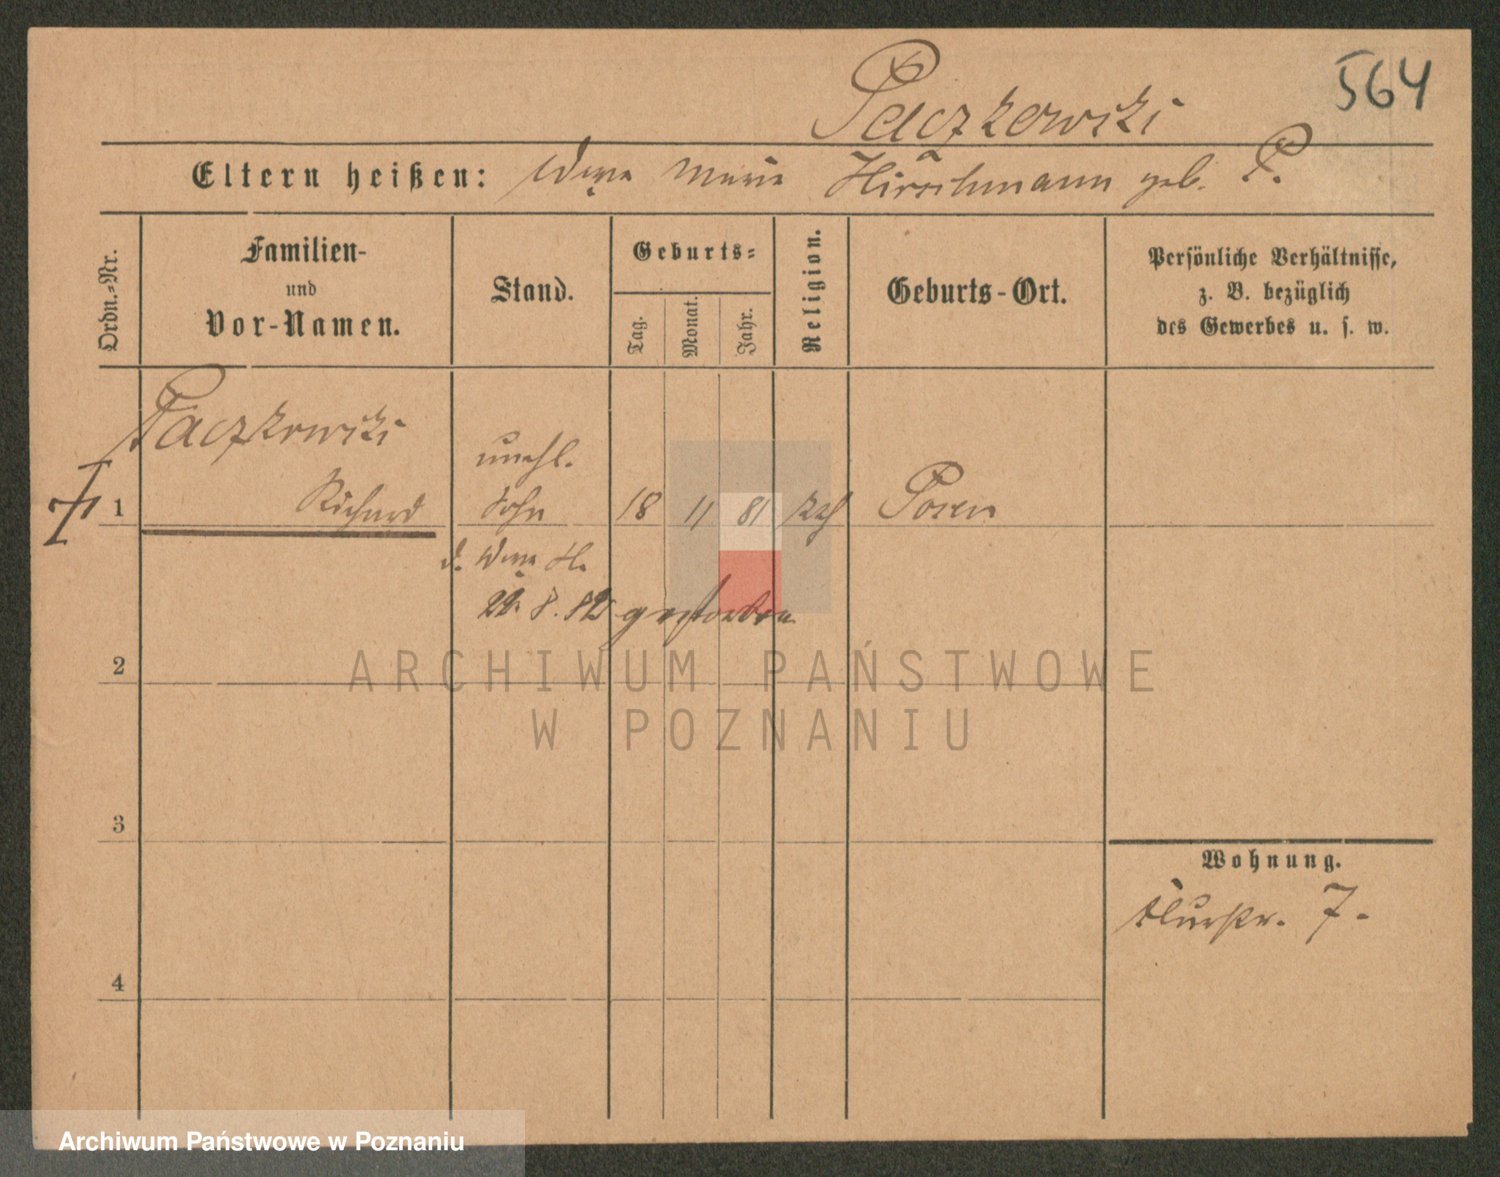 564
Paczkowski
Eltern heißen: Wwe Marie Hirschmann geb. P.
Ordn.-Nr.
Familien-
und
Vor-Namen.
Stand.
Geburts-
Tag.
Monat.
Jahr.
Religion.
Geburts-Ort.
Persönliche Verhältnisse,
z. B. bezüglich
des Gewerbes u. s. w.
Paczkowski
unehl.
1 Richard Sohn 18 11 81 kth Posen
d. Wwe H.
22. 8. 82 gestorben
2
ARCHIWUM PAŃSTWOWE
W POZNANIU
3
Wohnung.
7.
4
Archiwum Państwowe w Poznaniu